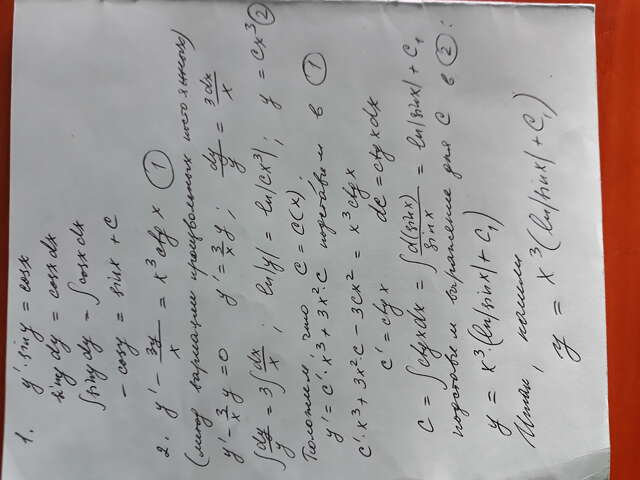 1. y'·sin y = cosx
siny dy = cosx dx
∫siny dy = ∫cosx dx
- cosy = sinx + C
2. y' - 3y/x = x³ ctg x (1)
(метод вариации произвольных постоянных)
y' - 3/x y = 0 y' = 3/x y; dy/y = 3dx/x
∫dy/y = 3∫dx/x; ln|y| = ln|cx³|; y = cx³ (2)
Положим, что C = C(x).
y' = c'·x³ + 3x²·c подставим в (1)
c'·x³ + 3x²·c - 3cx² = x³ ctg x
c' = ctg x dc = ctg x dx
c = ∫ctg x dx = ∫d(sinx)/sinx = ln|sinx| + C₁
подставим выражение для C в (2):
y = x³·(ln|sinx| + C₁)
Итак, нашли
y = x³(ln|sinx| + C₁)